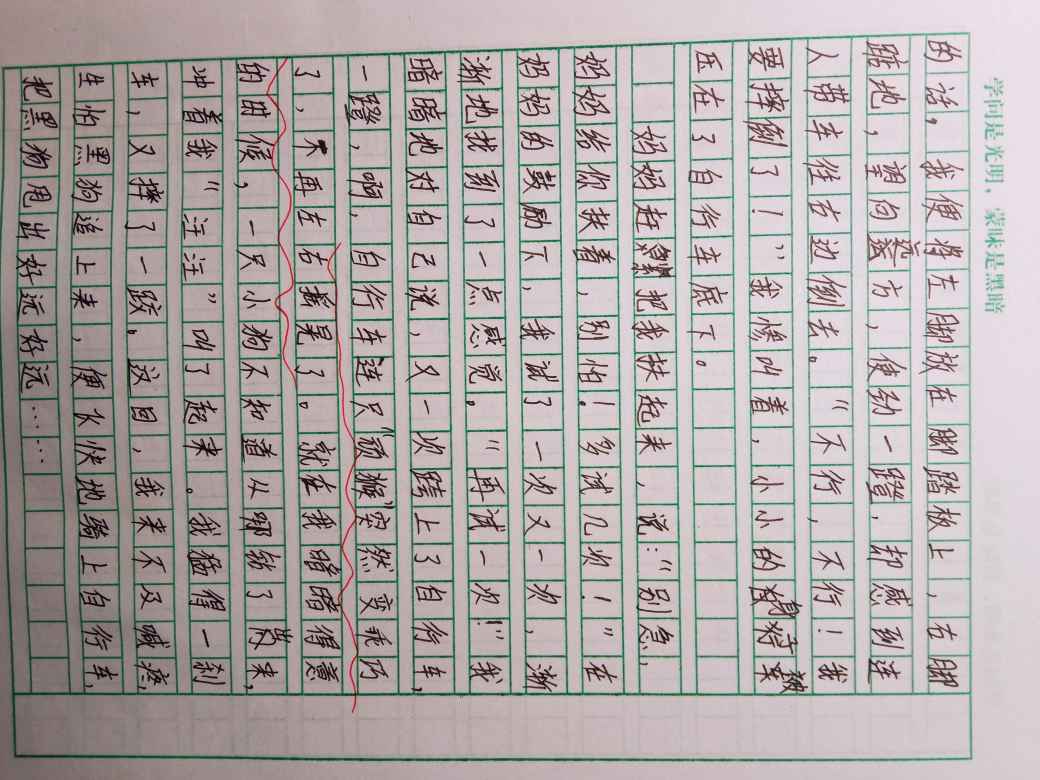 学问是光明，蒙昧是黑暗
的话，我便将左脚放在脚踏板上，右脚
踮地，望向方，使劲一蹬，却感到连
人带车往右边倒去。“不行，不行！我
要摔倒了！”我惨叫着，小小的身被
压在了自行车底下。
妈妈赶紧把我扶起来，说：“别急，
妈妈给你扶着，别怕！多试几次！”在
妈妈的鼓励下，我试了一次又一次，渐
渐地找到了一点感觉。“再试一次！”我
暗暗地对自己说，又一次跨上了自行车，
一蹬，啊，自行车这只“顽猴”突然变乖巧
了，不再左右摇晃了。就在我暗暗得意
的时候，一只小狗不知道从哪钻了出来，
冲着我“汪汪”叫了起来。我猛得一刹
车，又摔了一跤。这回，我来不及喊疼，
生怕黑狗追上来，便飞快地骑上自行车，
把黑狗甩出好远好远……